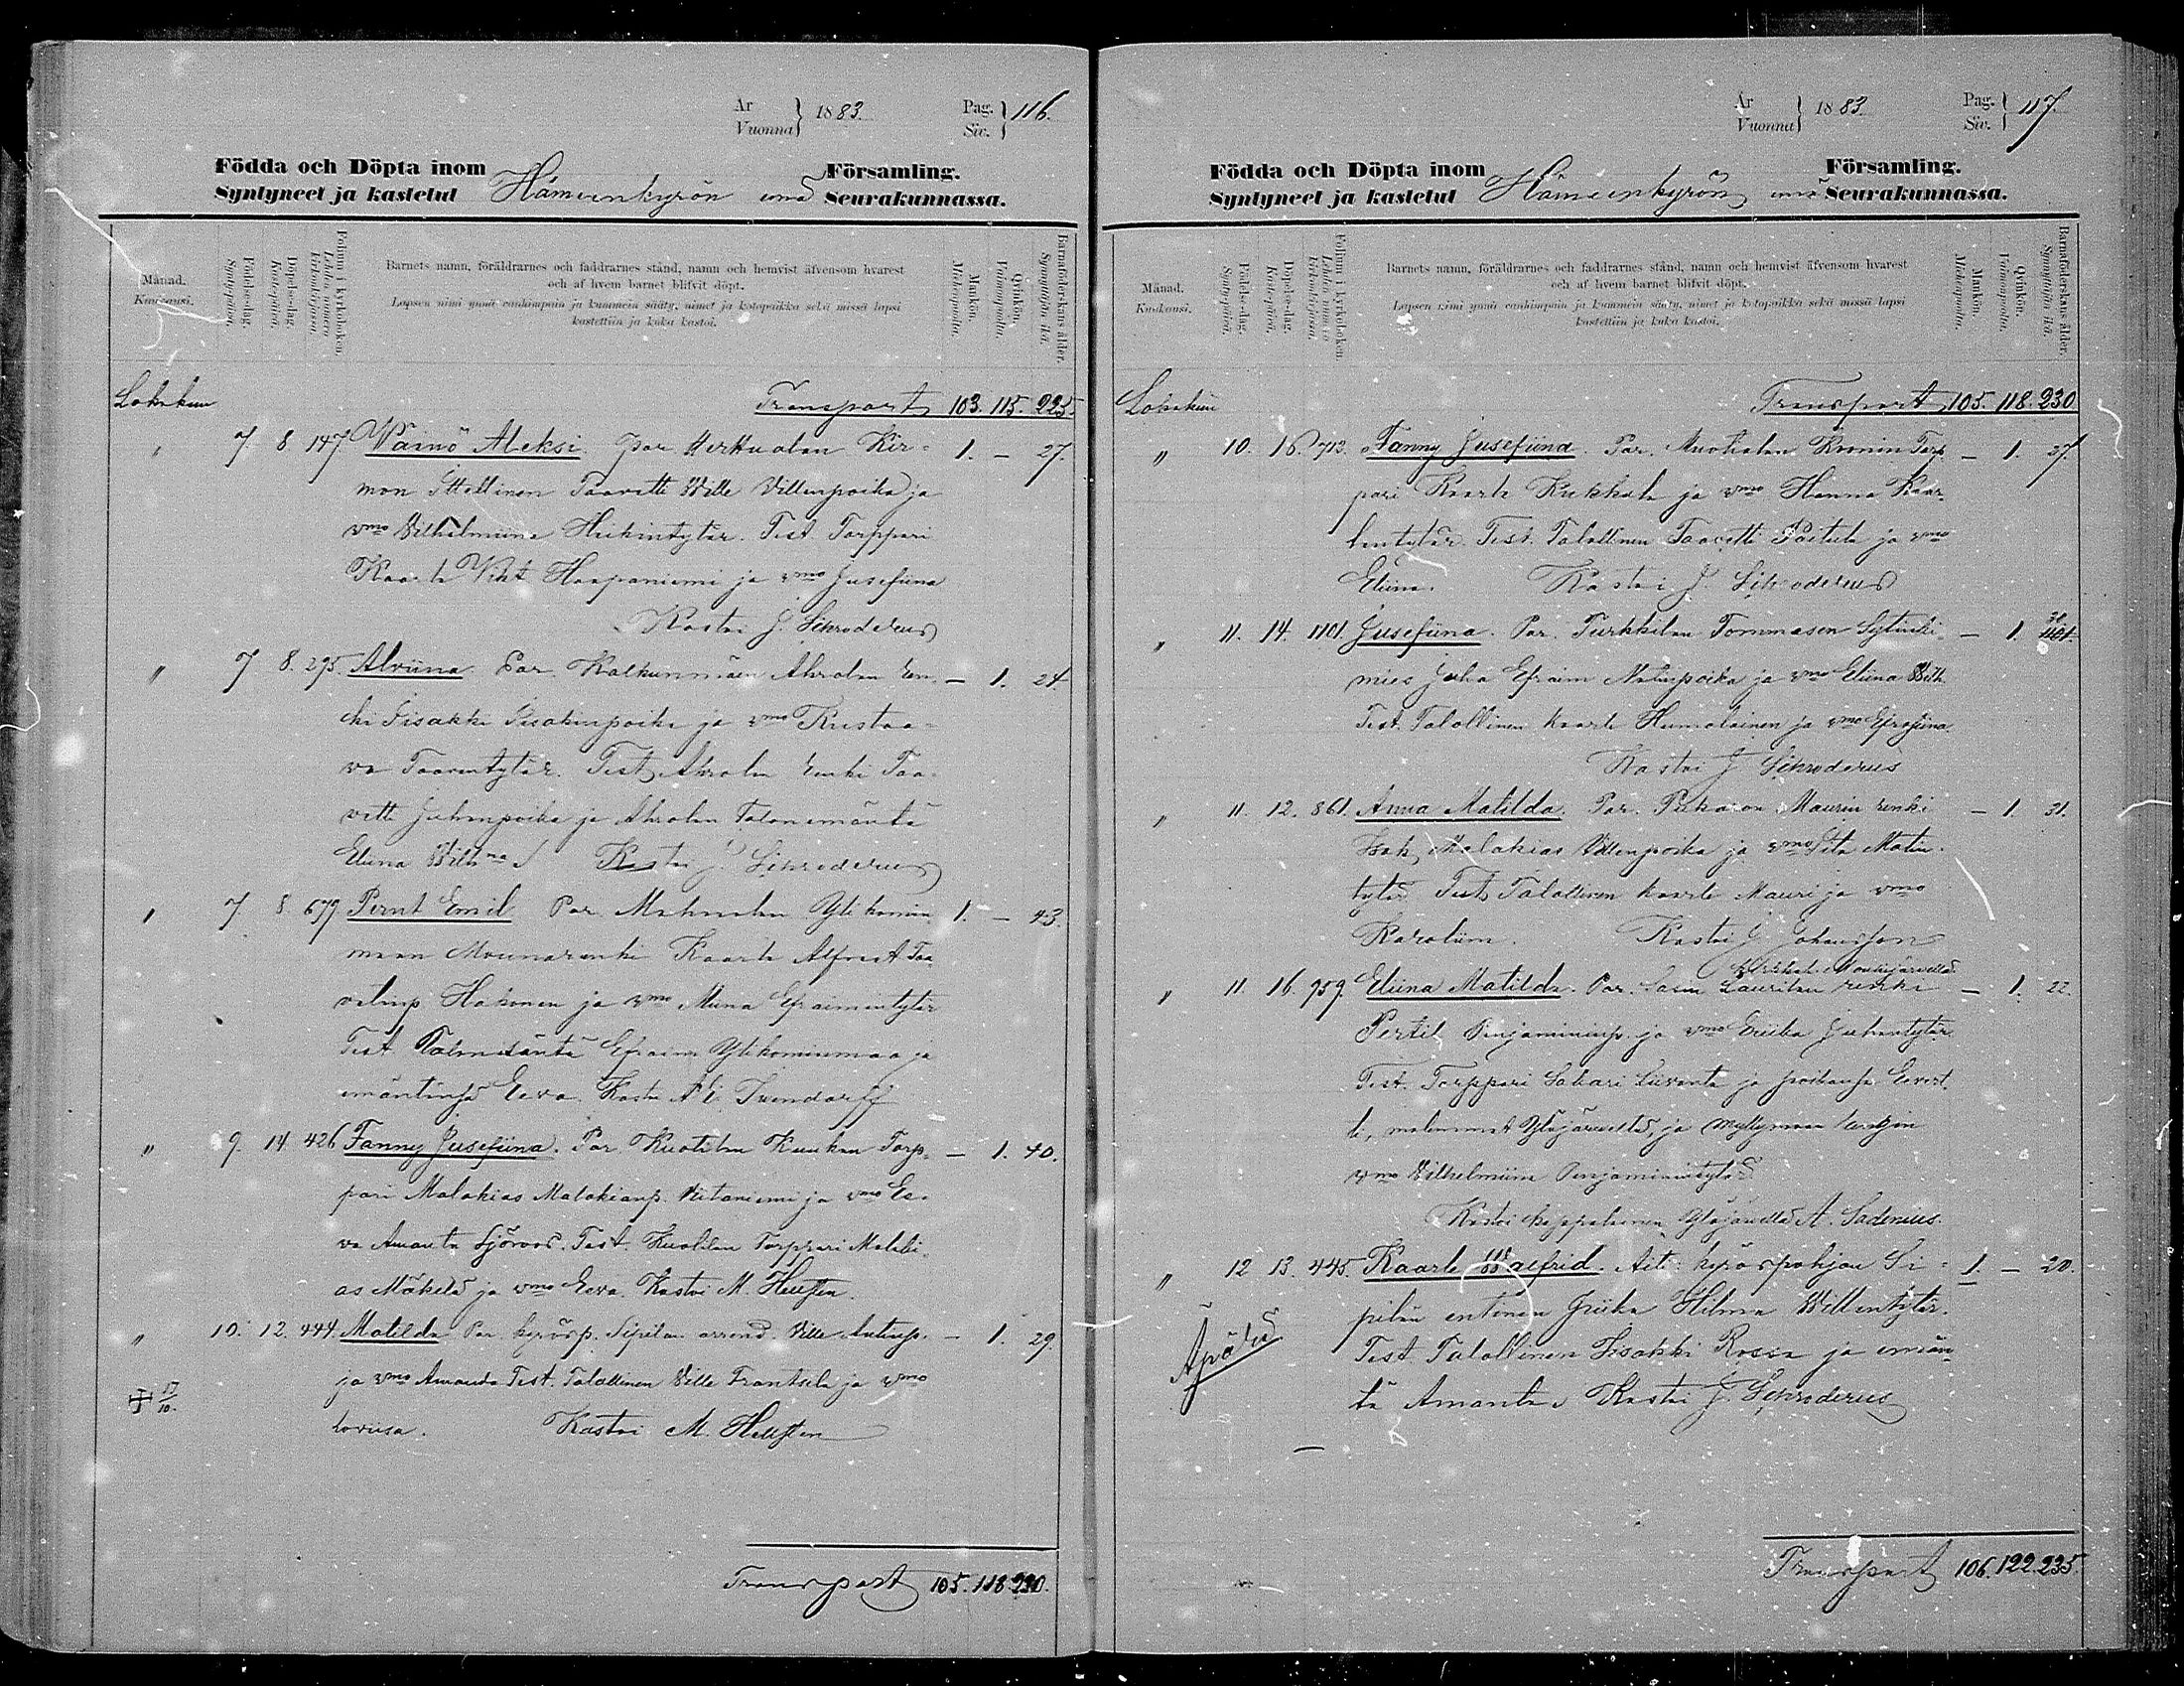 År
Vuonna } 1883.
Pag.
Siv. } 116.
Födda och Döpta inom Församling.
Syntyneet ja kastetut Hämeenkyrön emä Seurakunnassa.
Månad.
Kuukausi.
Födelse-dag.
Syntypäivä.
Döpelse-dag.
Kastepäivä.
Folium i kyrkoboken.
Lehden numero kirkonkirjassa.
Barnets namn, föräldrarnes och faddrarnes stånd, namn och hemvist äfvensom hvarest
och af hvem barnet blifvit döpt.
Lapsen nimi ynnä vanhimpain ja kummein sääty, nimet ja kotopaikka sekä missä lapsi
kastettiin ja kuka kastoi.
Mankön.
Miehenpuolta.
Qvinkön.
Vaimonpuolta.
Barnaföderskans ålder.
Synnyttäjän ikä.
Lokakuu Transport 103. 115. 225.
" 7. 8. 147 Väinö Aleksi. Par. Herttualan Kir- 1. — 27.
mon Ittellinen Taavetti Wille Villenpoika ja
vmo Vilhelmiina Heikintytär. Test. Torppari
Kaarle Viht. Haapaniemi ja vmo Jusefiina
Kastoi J. Schroderus
" 7 8. 295. Alviina. Par. Kalkunmäen Ahrolan ren- — 1. 24.
ki Iisakki Iisakinpoika ja vmo Kustaa-
va Taavintytär. Test. Ahrolan renki Taa-
vetti Juhanpoika ja Ahrolan Talonemäntä
Eliina Vilhma Kastoi J. Schroderus
" 7. 8. 679. Pernt Emil. Par. Mahnalan Ylikomin 1. — 43.
maan Muonarenki Kaarle Alfred Taa
vetinp. Hakonen ja vmo Miina Efraimintytär
Test. Talonisäntä Efraim Ylikominmaa ja
emäntänsä Eeva. Kastoi
" 9. 14. 426 Fanny Jusefiina. Par. Kuotilan Kuukan Torp- — 1. 40.
pari Malakias Malakianp. Vitaniemi ja vmo Ee-
va Amanta Sjöroos. Test. Kuotilan Torppari Malaki-
as Mäkelä ja vmo Eeva. Kastoi M. Hellsten.
" 10. 12. 444. Matilda Par. Kyrösp. Sipilän arrend. Ville Antinp. — 1. 29.
ja vmo Amanda Test. Talollinen Ville Frantsila ja vmo
17/10.
Loviisa. Kastoi M. Hellsten
Transport 105. 118. 230.
År
Vuonna } 1883.
Pag.
Siv. } 117.
Födda och Döpta inom Församling.
Syntyneet ja kastetut Hämeenkyrön emä Seurakunnassa.
Månad.
Kuukausi.
Födelse-dag.
Syntypäivä.
Döpelse-dag.
Kastepäivä.
Folium i kyrkoboken.
Lehden numero kirkonkirjassa.
Barnets namn, föräldrarnes och faddrarnes stånd, namn och hemvist äfvensom hvarest
och af hvem barnet blifvit döpt.
Lapsen nimi ynnä vanhimpain ja kummein sääty, nimet ja kotopaikka sekä missä lapsi
kastettiin ja kuka kastoi.
Mankön.
Miehenpuolta.
Qvinkön.
Vaimonpuolta.
Barnaföderskans ålder.
Synnyttäjän ikä.
Lokakuu Transport 105. 118. 230
" 10. 16. 713. Fanny Jusefiina. Par. Muotialan Kronin Torp — 1. 27.
pari Kaarle Kukkala ja vmo Hanna Kaar-
lentytär. Test. Talollinen Taavetti ja vmo
Eliina. Kastoi J. Schroderus
" 11. 14. 1101. Jusefiina. Par. Turkkilan Tommasen — 1.
mies Juha Efraim Matinpoika ja vmo Eliina Vilh.
Test. Talollinen Kaarle Humalainen ja vmo Efrosiina.
Kastoi J. Schroderus
" 11. 12. 861. Anna Matilda. Par. Maurin renki — 1. 31.
Isak Malakias Villenpoika ja vmo Matin-
tytär Test. Talollinen Kaarle Mauri ja vmo
Karoliina. Kastoi J. Johansson
" 11. 16. 959. Eliina Matilda. Par. Laurilan renki — 1. 22.
Pertil Penjamininp. ja vmo Eriika Juhantytär.
Test. Torppari Sakari Siivonta ja poikansa Eevert,
molemmat Ylöjärveltä, ja Myllymaan
vmo Vilhelmiina Penjaminintytär
Kastoi kappalainen Ylöjärvellä A. Sadenius.
" 12 13. 445. Kaarle Walfrid. Äiti: Kyröspohjan Si- 1. — 20.
pilän entinen piika Hilma Willentytär.
Äpärä
Test. Talollinen Iisakki Rossi ja emän-
tä Amanta. Kastoi J. Schroderus
Transport 106. 122. 235.